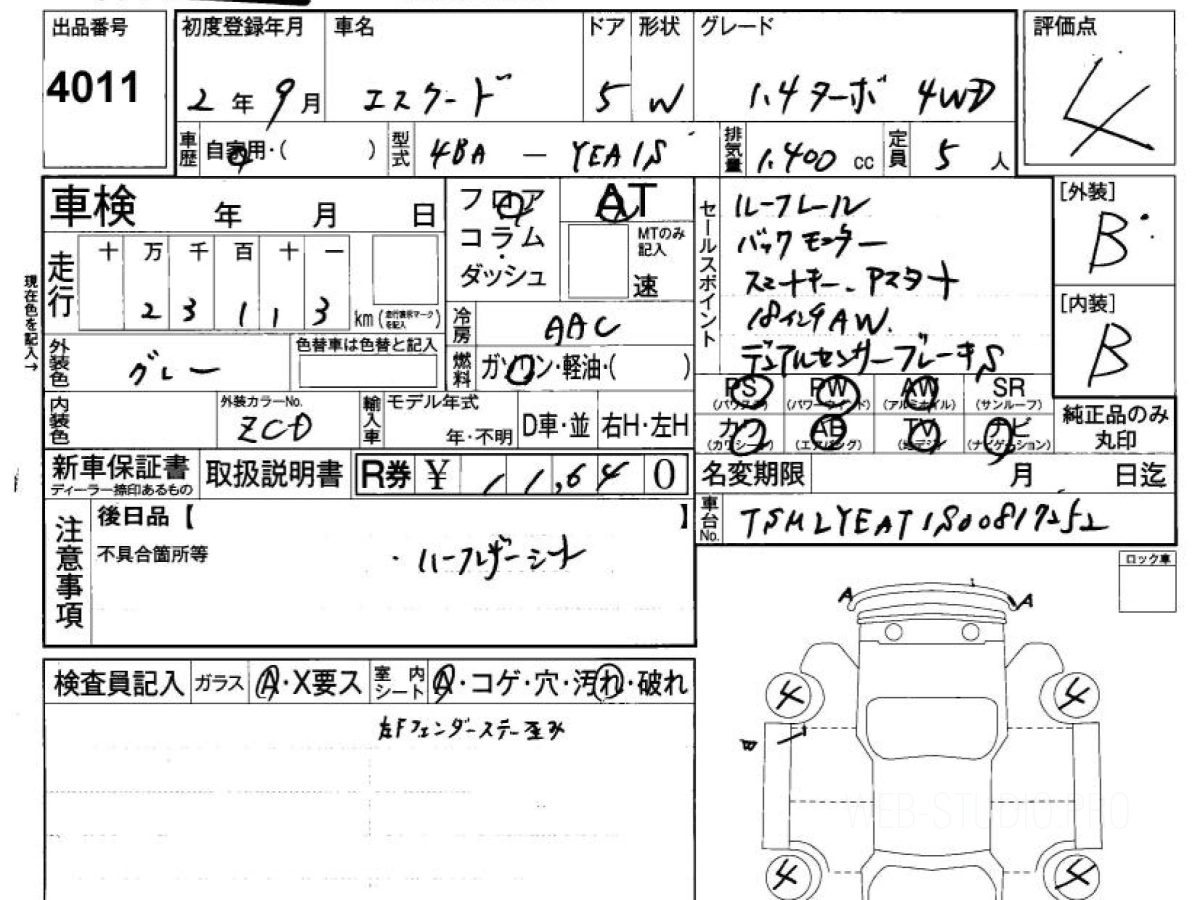 出品番号 初度登録年月 車名 ドア 形状 グレード 評価点
4011 2年9月 エスクード 5 W 1.4ターボ 4WD 4
車歴 自家用・( ) 型式 4BA — YEA1S 排気量 1,400 cc 定員 5 人
車検 年 月 日
フロア AT
コラム
ダッシュ
MTのみ記入
速
セールスポイント
ルーフレール
バックモニター
スマートキー、Pスタート
18インチAW.
デュアルセンサーブレーキS
[外装]
B
[内装]
B
現在色を記入→
走行 十 万 千 百 十 一
2 3 1 1 3 km (走行表示マークを記入)
冷房 AAC
燃料 ガソリン・軽油・( )
外装色 グレー 色替車は色替と記入
PS PW AW SR
(パワステ) (パワーウインド) (アルミホイル) (サンルーフ)
カワ AB TV ナビ
(カワシート) (エアバッグ) (地デジ) (ナビゲーション)
純正品のみ
丸印
内装色 外装カラーNo. ZCD 輸入車 モデル年式 年・不明 D車・並 右H・左H
新車保証書 取扱説明書 R券 ¥ 11,640
ディーラー捺印あるもの
名変期限 月 日迄
車台No. TSMLYEA1S00817252
注意事項
後日品【 】
不具合箇所等 ・ハーフレザーシート
ロック車
検査員記入 ガラス A・X要ス 室内シート A・コゲ・穴・汚れ・破れ
左Fフェンダーステー歪み
A 1 A
4 4
W 1
WEB-STUDIO.PRO
4 4